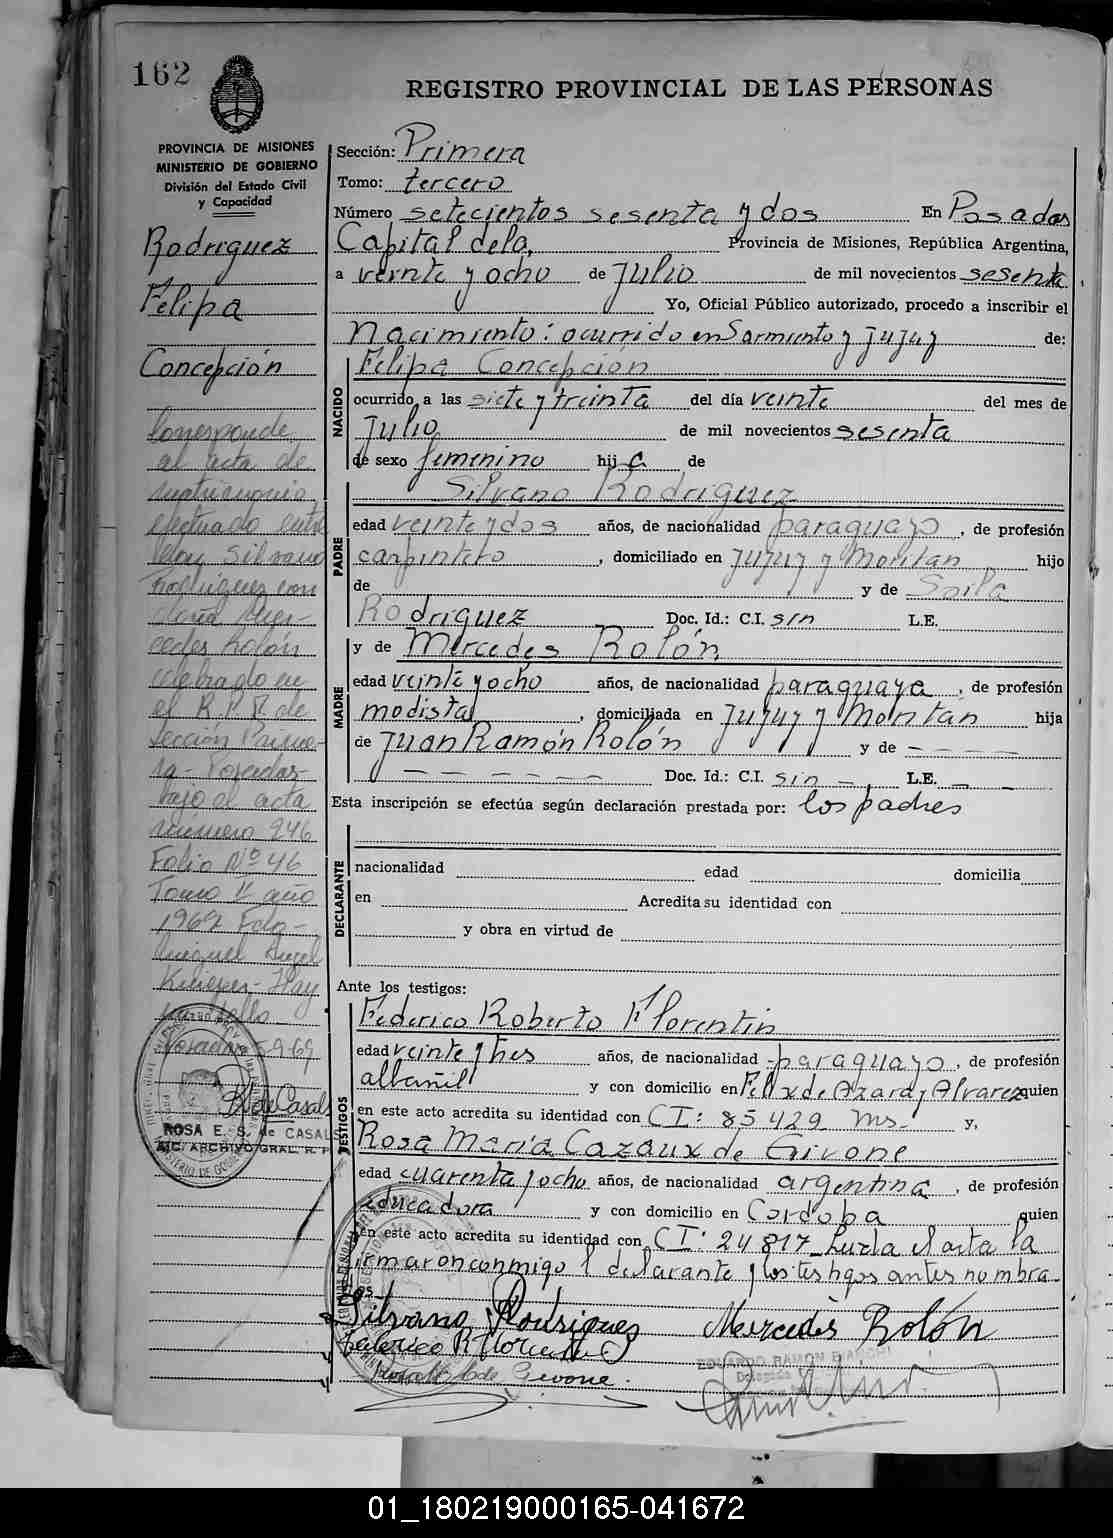 162
REGISTRO PROVINCIAL DE LAS PERSONAS
PROVINCIA DE MISIONES
MINISTERIO DE GOBIERNO
División del Estado Civil
y Capacidad
Rodriguez
Felipa
Concepción
Corresponde
al acta de
matrimonio
efectuado entre
don Silvano
Rodriguez con
doña Mer-
cedes Rolón
celebrado en
el R.P.P. de
Sección Prime-
ra - Posadas-
bajo el acta
número 246
Folio Nº 46
Tomo año
1962 Fdo-
Miguel Angel
Hay
un sello
Posadas 5-9-69
R. de Casals
ROSA E. S. de CASALS
A/C. ARCHIVO GRAL. R. P.
Sección: Primera
Tomo: tercero
Número setecientos sesenta y dos En Posadas
Capital de la, Provincia de Misiones, República Argentina,
a veinte y ocho de Julio de mil novecientos sesenta
Yo, Oficial Público autorizado, procedo a inscribir el
Nacimiento: ocurrido en Sarmiento y Jujuy de:
NACIDO
Felipa Concepción
ocurrido a las siete y treinta del día veinte del mes de
Julio de mil novecientos sesenta
de sexo femenino hija de
PADRE
Silvano Rodriguez
edad veinte y dos años, de nacionalidad paraguayo, de profesión
carpintero, domiciliado en Jujuy y Moritan hijo
de y de
Rodriguez Doc. Id.: C.I. sin L.E.
MADRE
y de Mercedes Rolón
edad veinte y ocho años, de nacionalidad paraguaya, de profesión
modista, domiciliada en Jujuy y Moritán hija
de Juan Ramón Rolón y de - - - -
- - - - - - Doc. Id.: C.I. sin - L.E. - -
Esta inscripción se efectúa según declaración prestada por: los padres
DECLARANTE
nacionalidad edad domicilia
en Acredita su identidad con
y obra en virtud de
Ante los testigos:
TESTIGOS
Federico Roberto Florentin
edad veinte y tres años, de nacionalidad paraguayo, de profesión
albañil y con domicilio en Felix de Azara y Alvarez quien
en este acto acredita su identidad con CI: 85429 ms. y,
Rosa María Cazaux de Givone
edad cuarenta y ocho años, de nacionalidad argentina, de profesión
educadora y con domicilio en Cordoba quien
en este acto acredita su identidad con CI: 24817_ Leida el acta la
firmaron conmigo el declarante y los testigos antes nombra
dos_
Silvano Rodrigues Mercedes Rolón
Federico R Florentin
de Givone.
EDUARDO RAMON BIANCHI
01_180219000165-041672